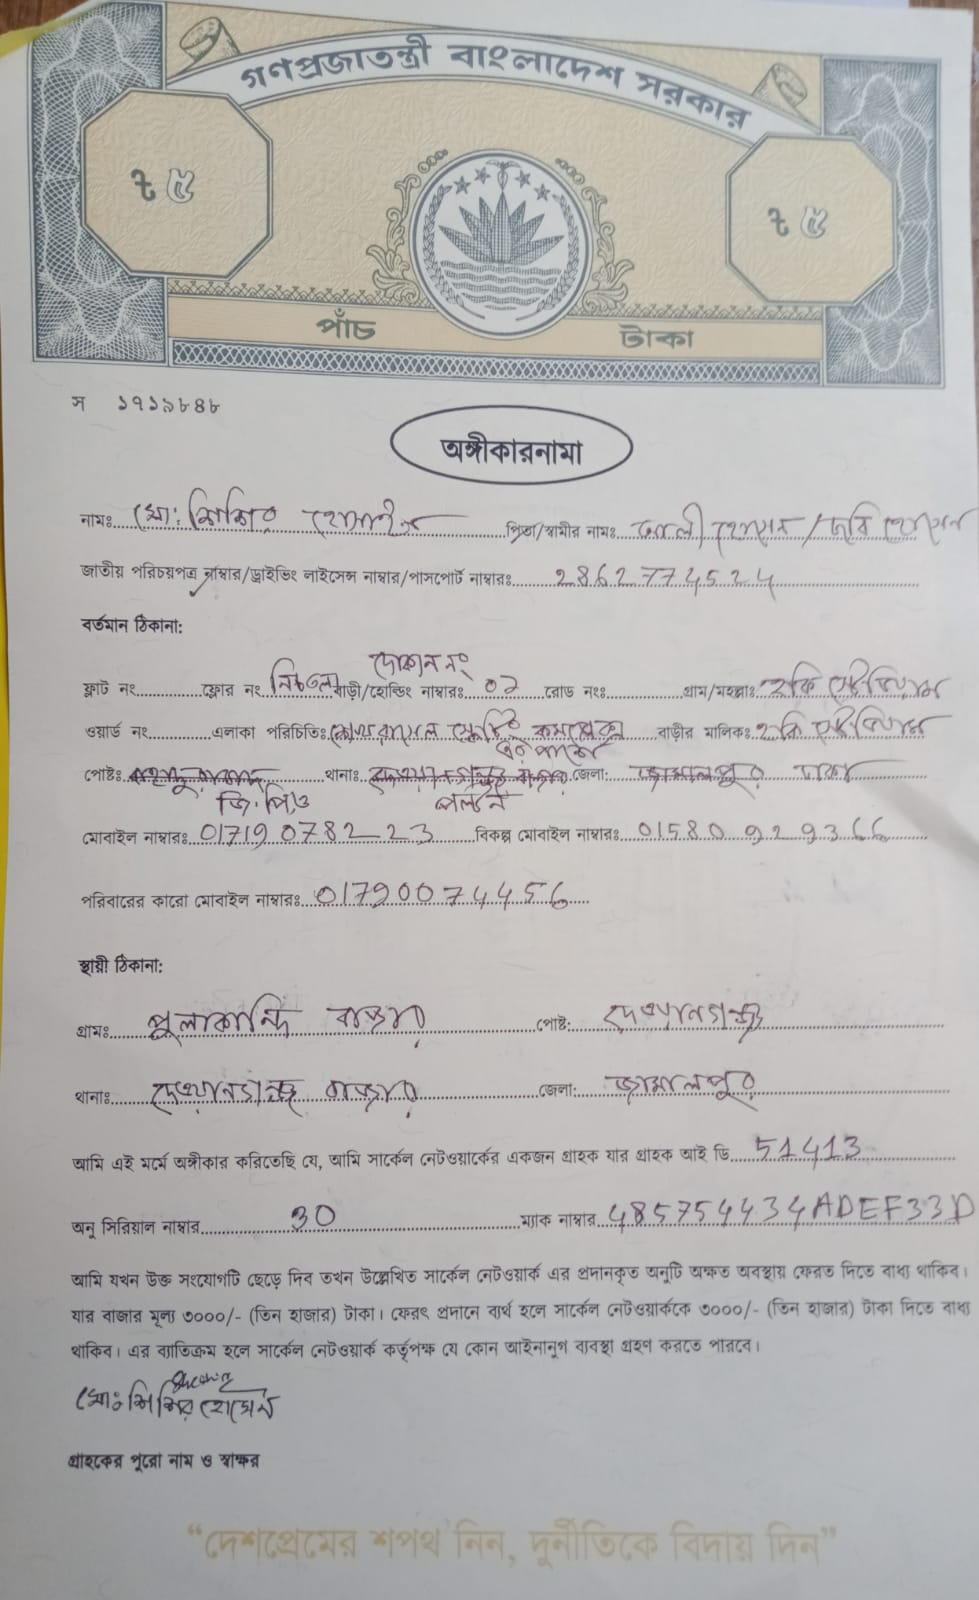 গণপ্রজাতন্ত্রী বাংলাদেশ সরকার
৳ ৫ ৳ ৫
পাঁচ টাকা
স ১৭১৯৮৪৮
অঙ্গীকারনামা
নামঃ মো: শিশির হোসাইন পিতা/স্বামীর নামঃ আলী হোসেন / জবি হোসেন
জাতীয় পরিচয়পত্র নাম্বার/ড্রাইভিং লাইসেন্স নাম্বার/পাসপোর্ট নাম্বারঃ 2862774524
বর্তমান ঠিকানা:
দোকান নং
ফ্লাট নং ফ্লোর নং নিচতলা বাড়ী/হোল্ডিং নাম্বারঃ ০২ রোড নংঃ গ্রাম/মহল্লাঃ হকি স্টেডিয়াম
ওয়ার্ড নং এলাকা পরিচিতিঃ কমপ্লেক্স বাড়ীর মালিকঃ হকি স্টেডিয়াম
এর পাশে
পোষ্টঃ থানাঃ জেলা: জামালপুর ঢাকা
জি.পিও পল্টন
মোবাইল নাম্বারঃ 01719078223 বিকল্প মোবাইল নাম্বারঃ 01580929366
পরিবারের কারো মোবাইল নাম্বারঃ 01790074456
স্থায়ী ঠিকানা:
গ্রামঃ পুলাকান্দি বাজার পোষ্ট: দেওয়ানগঞ্জ
থানাঃ দেওয়ানগঞ্জ বাজার জেলা: জামালপুর
আমি এই মর্মে অঙ্গীকার করিতেছি যে, আমি সার্কেল নেটওয়ার্কের একজন গ্রাহক যার গ্রাহক আই ডি 51413
অনু সিরিয়াল নাম্বার 30 ম্যাক নাম্বার 485754434ADEF33D
আমি যখন উক্ত সংযোগটি ছেড়ে দিব তখন উল্লেখিত সার্কেল নেটওয়ার্ক এর প্রদানকৃত অনুটি অক্ষত অবস্থায় ফেরত দিতে বাধ্য থাকিব।
যার বাজার মূল্য ৩০০০/- (তিন হাজার) টাকা। ফেরৎ প্রদানে ব্যর্থ হলে সার্কেল নেটওয়ার্ককে ৩০০০/- (তিন হাজার) টাকা দিতে বাধ্য
থাকিব। এর ব্যতিক্রম হলে সার্কেল নেটওয়ার্ক কর্তৃপক্ষ যে কোন আইনানুগ ব্যবস্থা গ্রহণ করতে পারবে।
মো: শিশির হোসেন
গ্রাহকের পুরো নাম ও স্বাক্ষর
“দেশপ্রেমের শপথ নিন, দুর্নীতিকে বিদায় দিন”